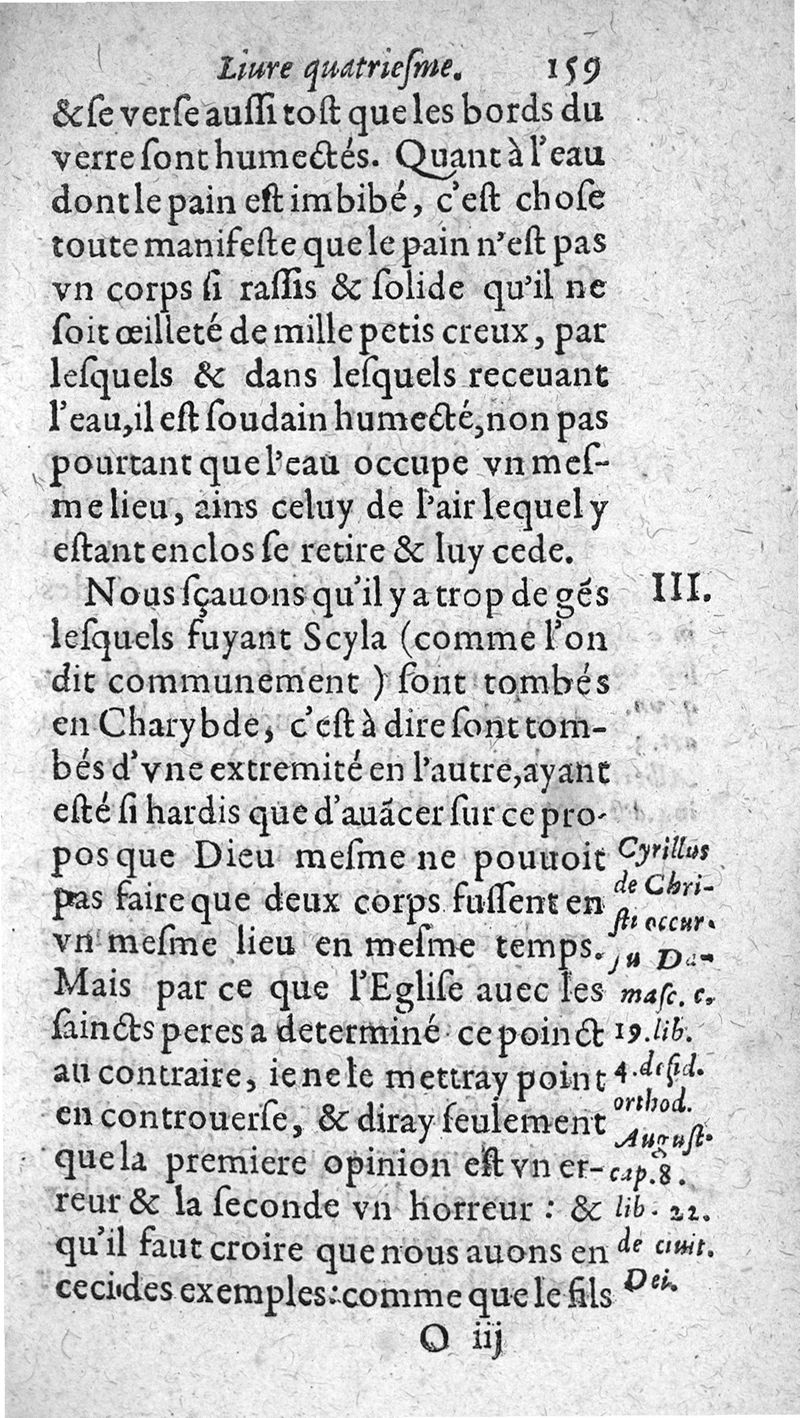 Liure quatrieſme. 159
&ſe verſe auſſi toſt que les bords du
verre ſont humectés. Quant à l'eau
dont le pain eſt imbibé, c'eſt choſe
toute manifeſte que le pain n'eſt pas
vn corps ſi raſſis & ſolide qu'il ne
ſoit œilleté de mille petis creux, par
leſquels & dans leſquels receuant
l'eau, il eſt ſoudain humecté, non pas
pourtant que l'eau occupe vn meſ-
me lieu, ains celuy de l'air lequel y
eſtant enclos ſe retire & luy cede.
Nous ſçauons qu'il y a trop de gẽs
III.
leſquels fuyant Scyla (comme l'on
dit communement) ſont tombés
en Charybde, c'eſt à dire ſont tom-
bés d'vne extremité en l'autre, ayant
eſté ſi hardis que d'auãcer ſur ce pro-
pos que Dieu meſme ne pouuoit
pas faire que deux corps fuſſent en
vn meſme lieu en meſme temps.
Mais par ce que l'Egliſe auec les
ſaincts peres a determiné ce poinct
au contraire, ie ne le mettray point
en controuerſe, & diray ſeulement
que la premiere opinion eſt vn er-
reur & la ſeconde vn horreur : & 
qu'il faut croire que nous auons en
ceci des exemples: comme que le fils
Cyrillus
de Chri-
ſti occur.
Da-
maſc. c.
19. lib.
4. de fid.
orthod.
Auguſt.
cap. 8.
lib. 22.
de ciuit.
Dei.
O iij